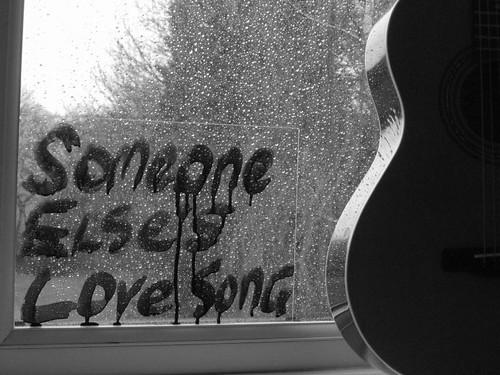 Someone
Else's
Love Song